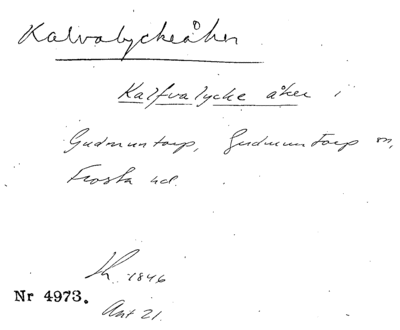 Kalvalyckeåker
Kalfvalycke åker i
Gudmuntorp, Gudmuntorp sn,
Frosta hd.
Sk. 1846
Nr 4973.
Ant 21.